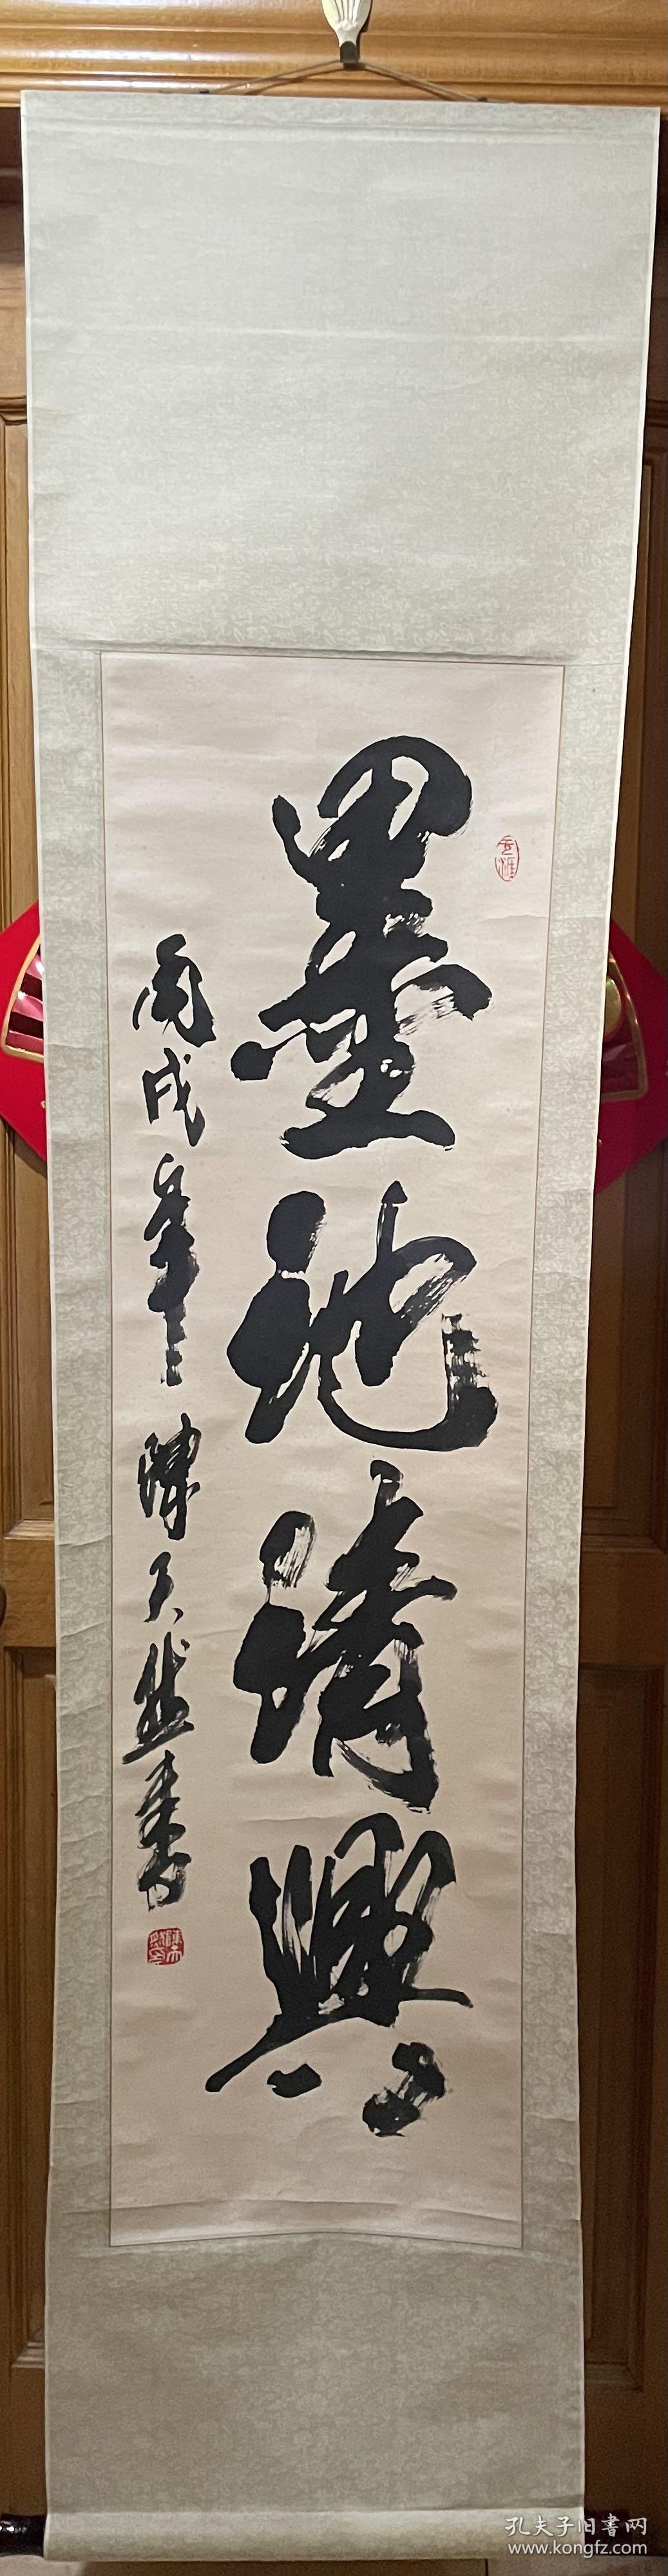 墨池清興
丙戌年 陳天然書
孔夫子旧書网
www.kongfz.com